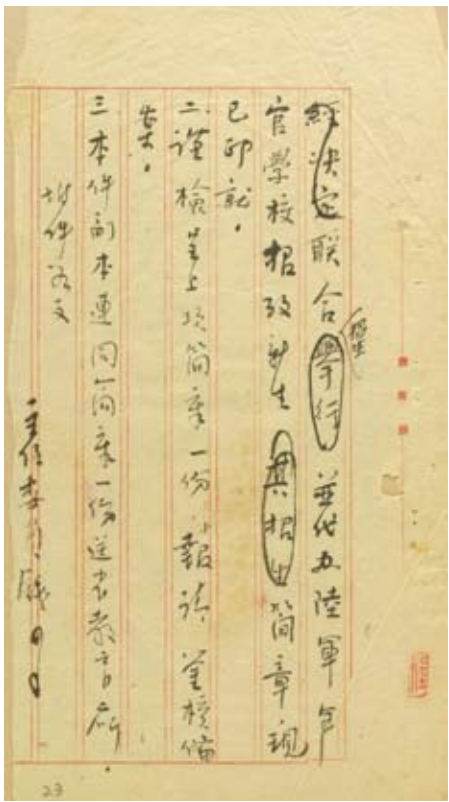 經決定聯合舉行招生並代办陸軍軍
官學校招攷新生其招生簡章現
已印就。
二、謹檢呈上項簡章一份,報請 鑒核備
查。
三本件副本連同簡章一份送省教育廳。
附件如文
主任委員錢〇〇
23